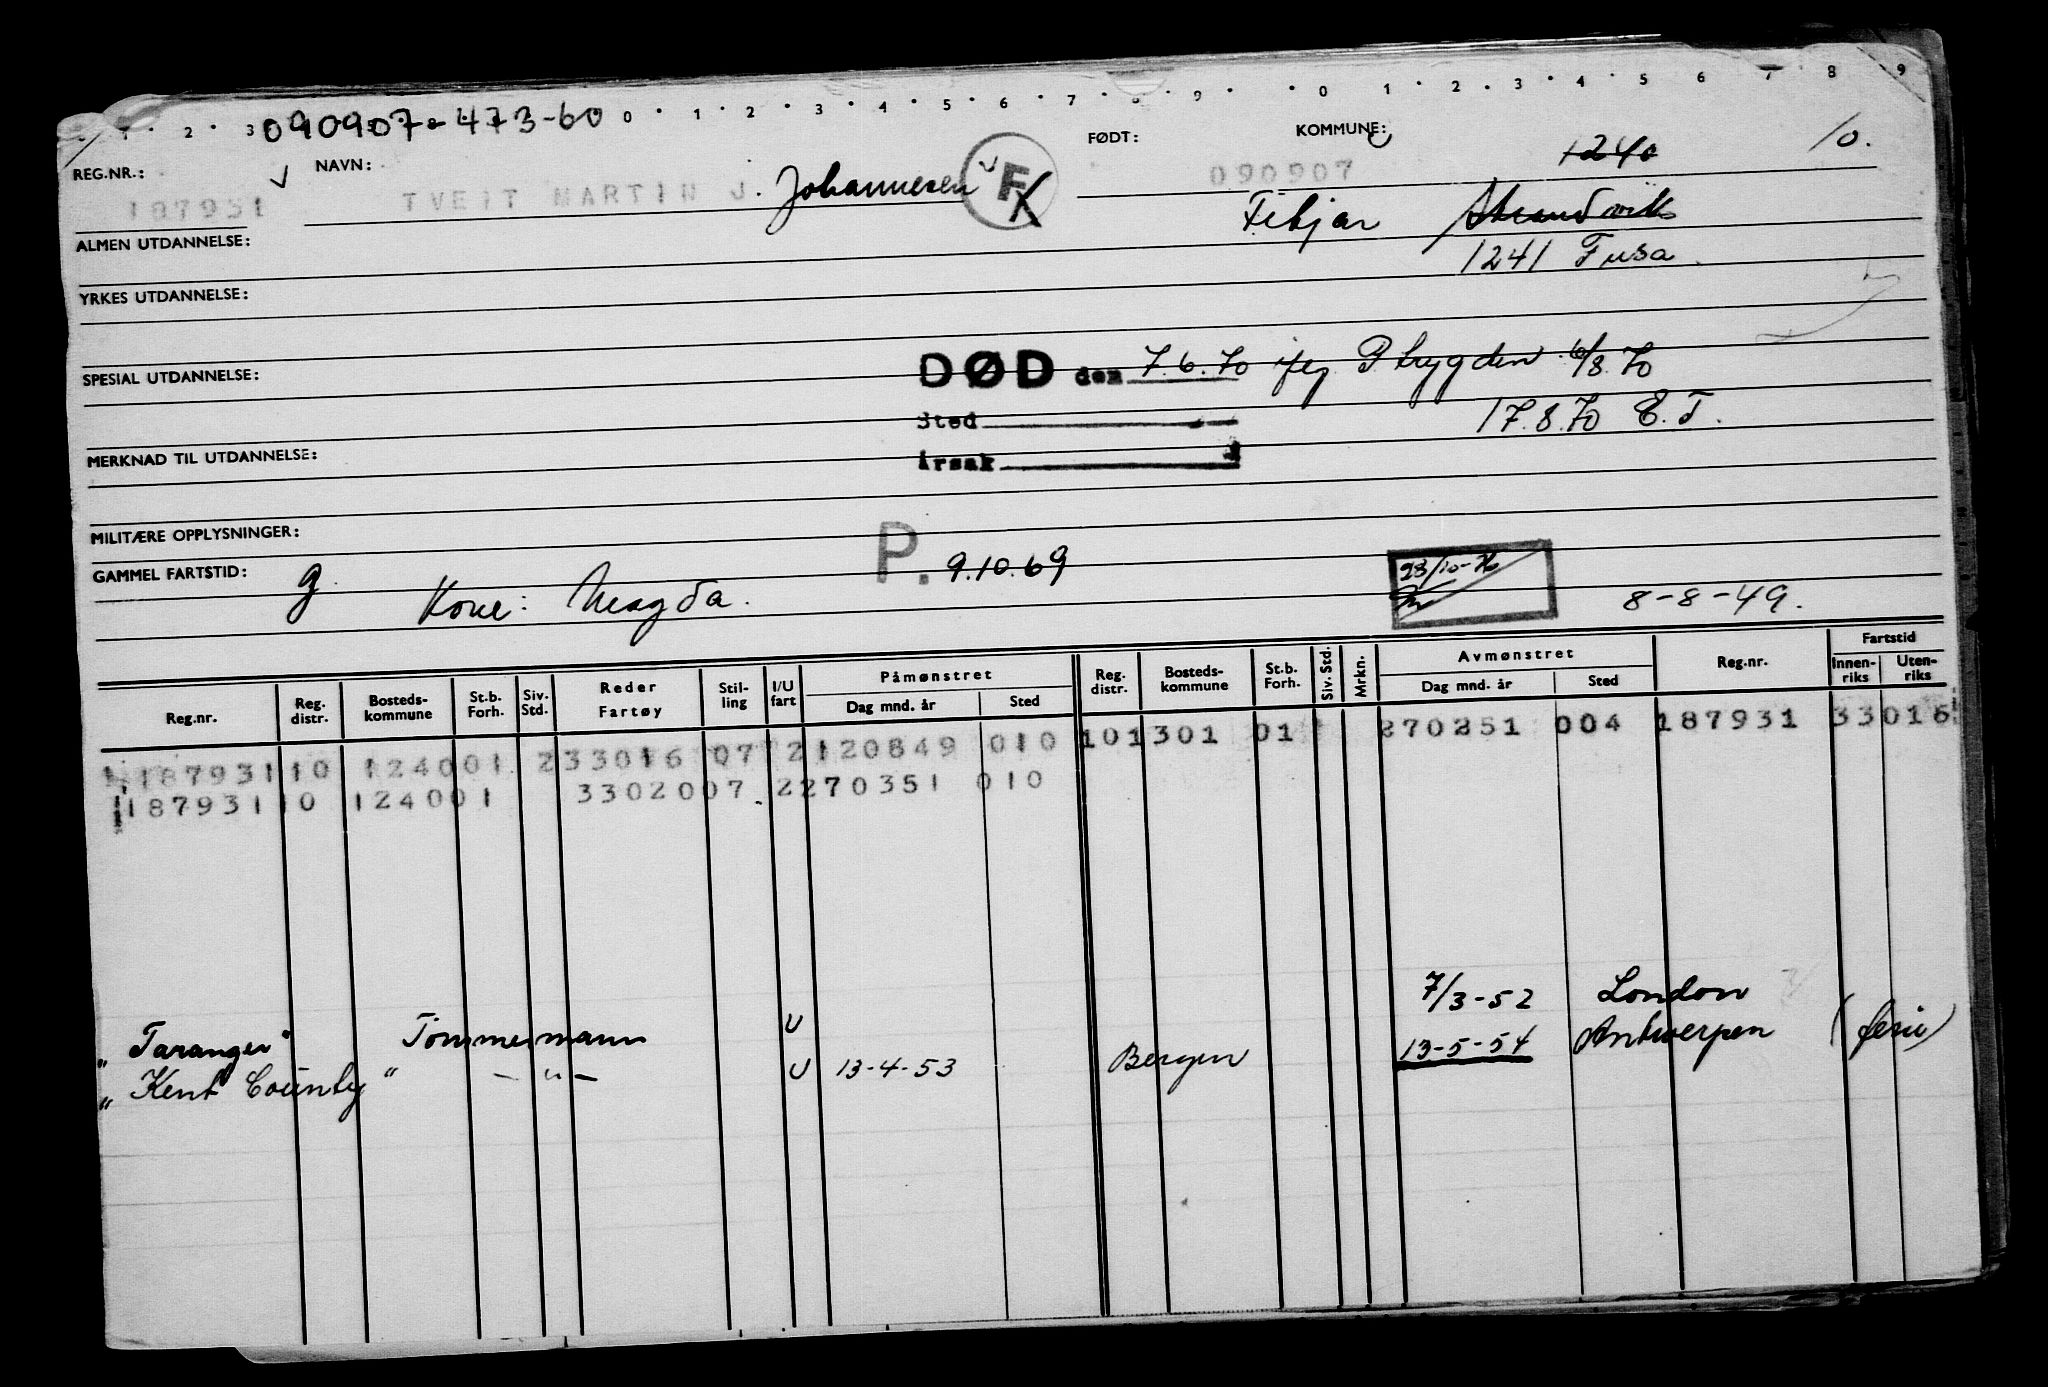 1 2 3 0 1 2 3 4 5 6 7 8 9 0 1 2 3 4 5 6 7 8 9
090907-473-60
REG.NR.: NAVN: FØDT: KOMMUNE: 1240 10.
187931 TVEIT MARTIN J. Johannesen F 090907
ALMEN UTDANNELSE: Strandvik
1241 Fusa
YRKES UTDANNELSE:
SPESIAL UTDANNELSE: DØD den 7.6.70 P trygden 6/8.70
Sted 17.8.70 E.T.
MERKNAD TIL UTDANNELSE: Årsak
MILITÆRE OPPLYSNINGER:
GAMMEL FARTSTID: g Kone: Magda. P. 9.10.69 8-8-49.
Reg.nr. Reg. distr. Bosteds- kommune St.b. Forh. Siv. Std. Reder Fartøy Stil- ling I/U fart Påmønstret Dag mnd. år Sted Reg. distr. Bosteds- kommune St.b. Forh. Siv. Std. Mrkn. Avmønstret Dag mnd. år Sted Reg.nr. Fartstid Innen- riks Uten- riks
187931 10 1240 01 2 33016 07 2 120849 010 10 1301 01 270251 004 187931 33016
187931 10 1240 01 33020 07 2 270351 010
"Taranger" Tømmermann U 7/3-52 London
"Kent County" -"- U 13-4-53 Bergen 13-5-54 Antwerpen (ferie)